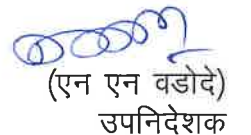 (एन एन वडोदे)
उपनिदेशक